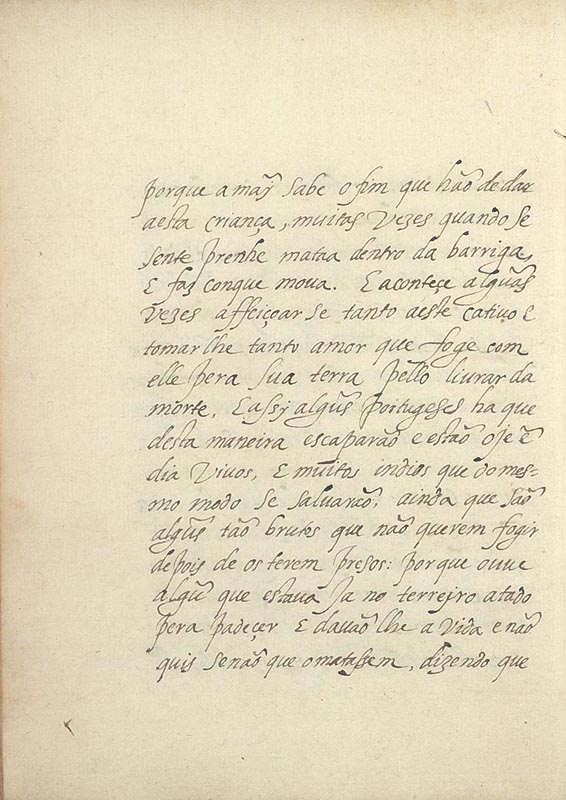 porque a maỹ sabe o fim que hão de dar
a esta criança, muitas vezes quando se
sente prenhe mataa dentro da barriga,
E faz conque mova. E aconteçe algũas
vezes affeiçoar se tanto a este cativo E
tomar lhe tanto amor que foge com
elle pera sua terra pello livrar da
morte, E assy algũs portugeses ha que
desta maneira escaparão e estão oje ẽ
dia vivos, E muitos indios que do mes=
mo modo se salvarão; ainda que são
algũs tão brutos que não querem fogir
depois de os terem presos: porque ouve
algũ que estava ja no terrejro atado
pera padeçer E davão lhe a vida e não
quis senão que o matassem, dizendo que